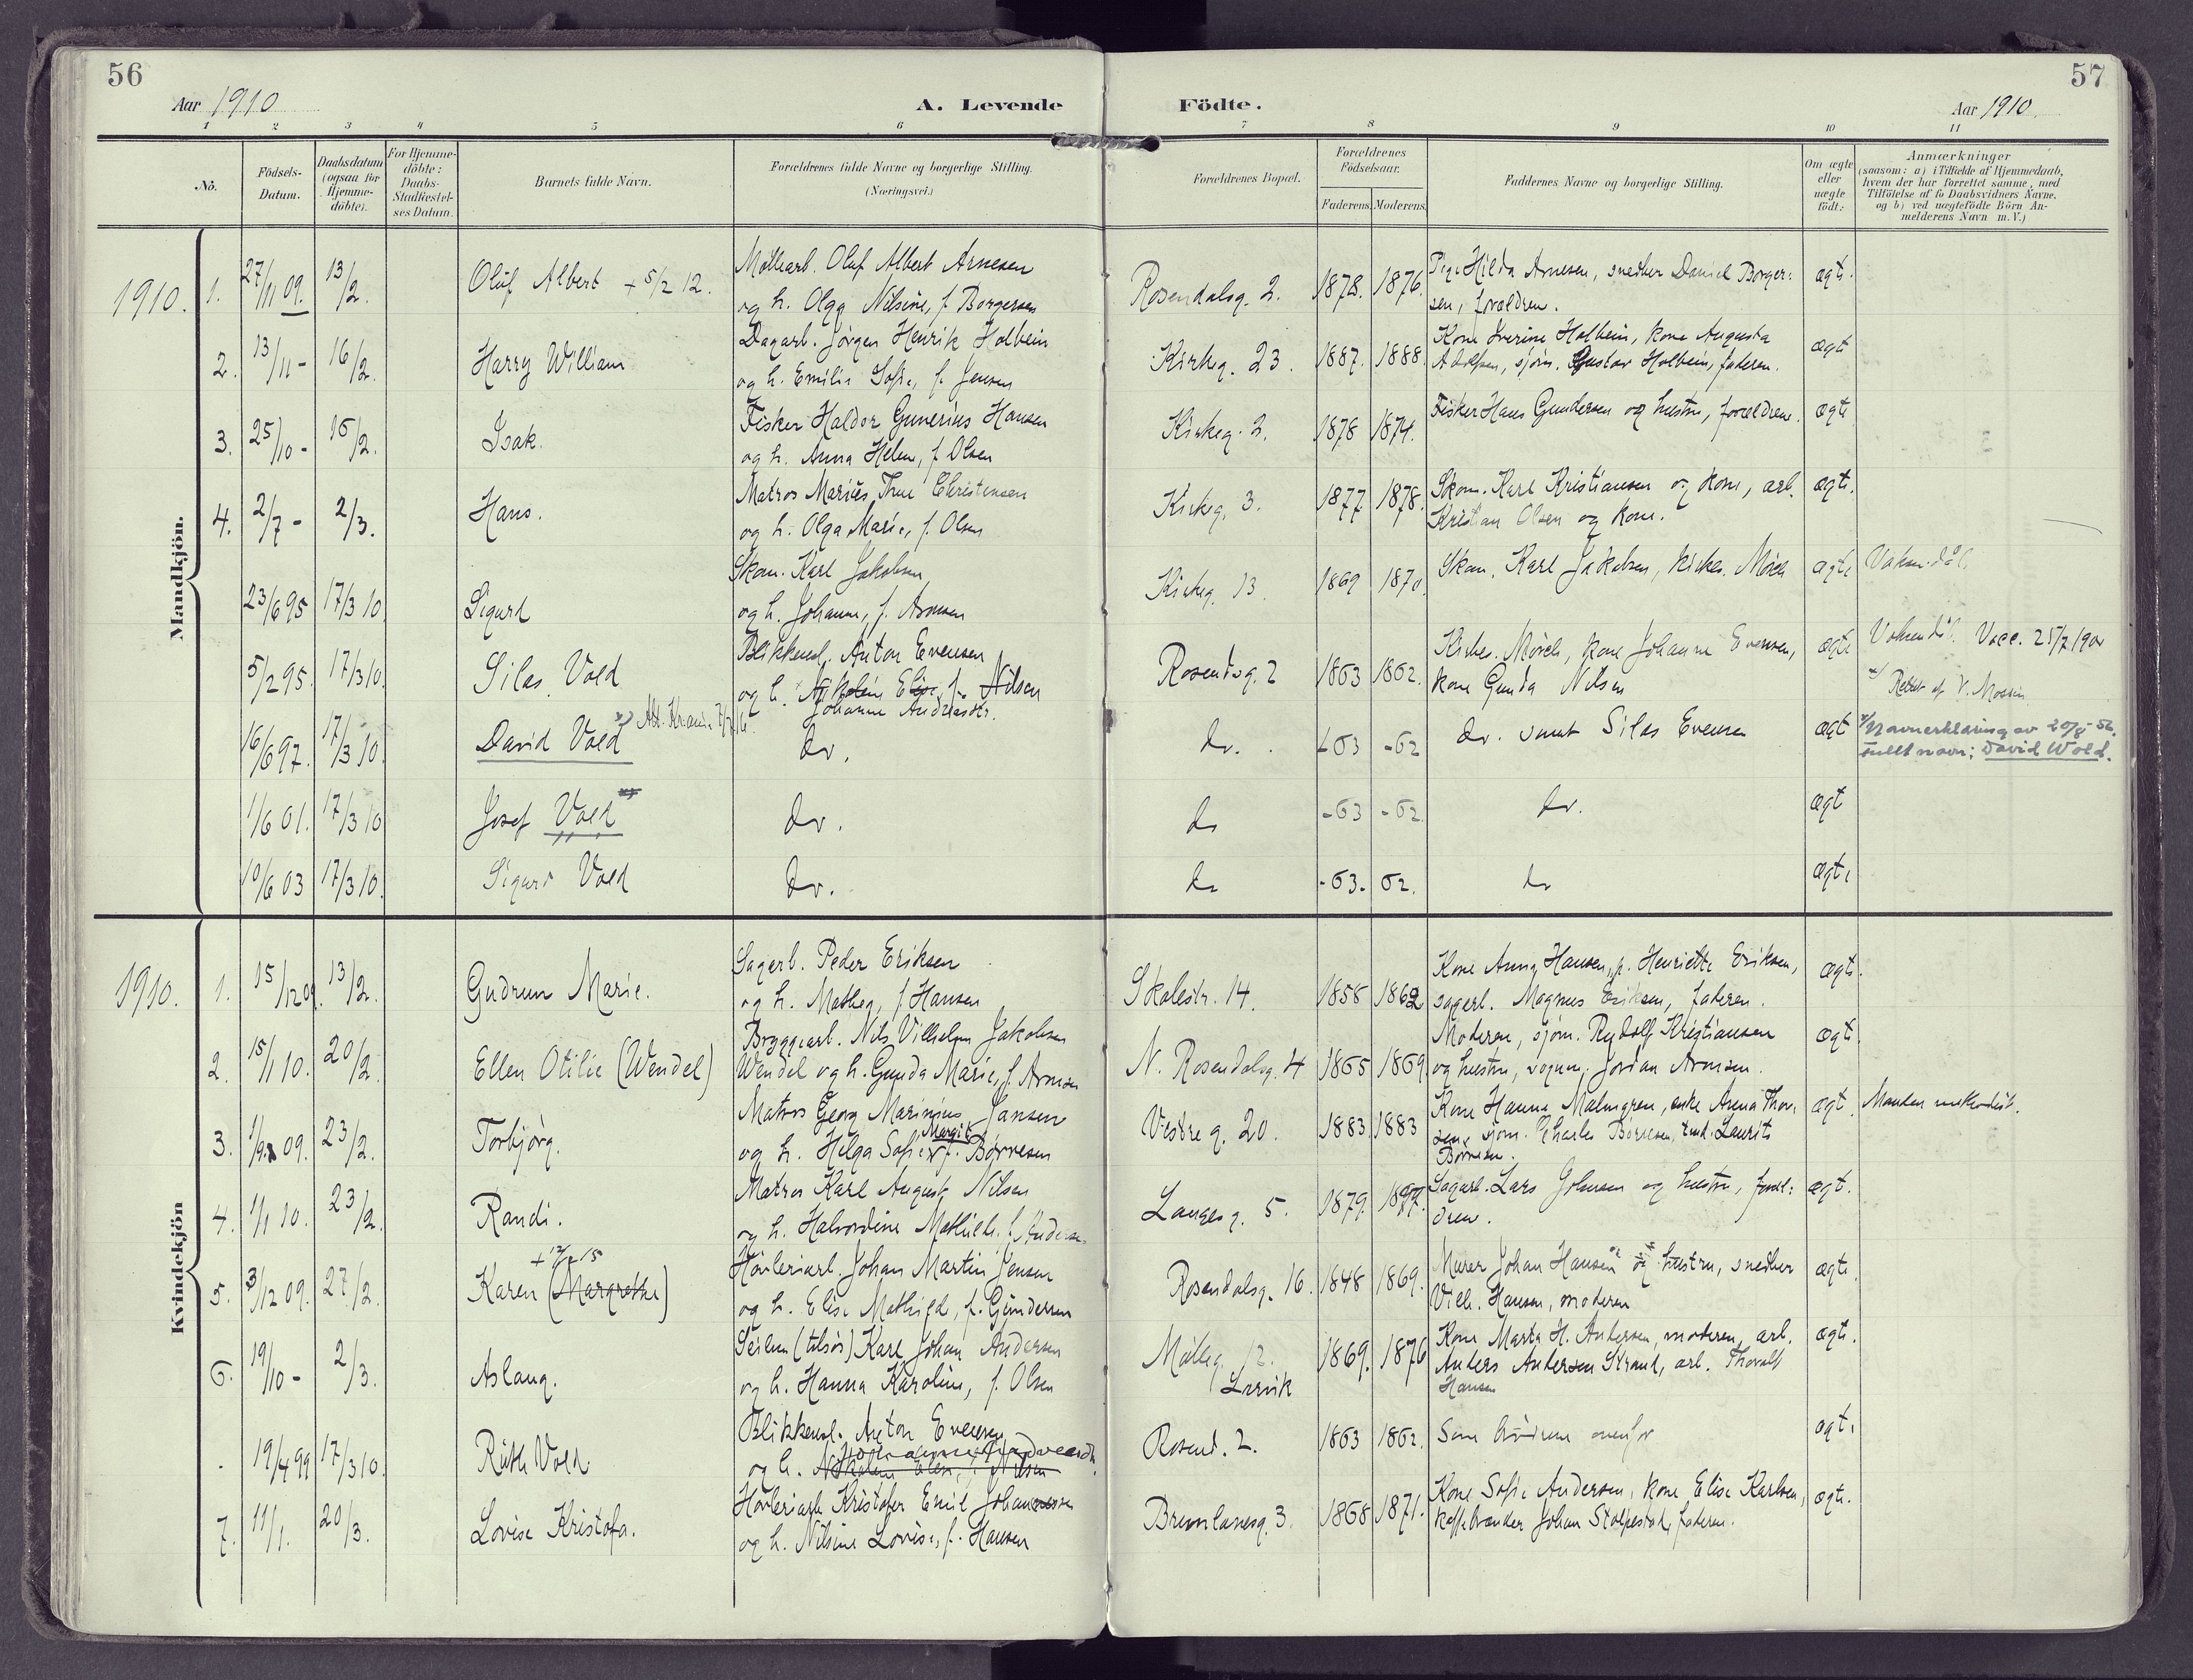 56
57
Aar 1910
A. Levende
Födte.
Aar 1910.
1 2 3 4 5 6 7 8 9 10 11
No.
Födsels-
Datum.
Daabsdatum
(ogsaa for
Hjemme-
döbte).
For Hjemme-
döbte:
Daabs-
Stadfæstel-
ses Datum.
Barnets fulde Navn.
Forældrenes fulde Navne og borgerlige Stilling.
(Næringsvei.)
Forældrenes Bopæl.
Forældrenes
Födselsaar.
Faderens. Moderens.
Faddernes Navne og borgerlige Stilling.
Om ægte
eller
uægte
födt:
Anmærkninger
(saasom: a) i Tilfælde af Hjemmedaab,
hvem der har forrettet samme, med
Tilföielse af to Daabsvidners Navne,
og b) ved uægtefödte Börn An-
melderens Navn m. V.)
Mandkjön.
1910. 1. 27/11 09. 13/2. Oluf Albert + 5/2 12.
Möllearb. Oluf Albert Arnesen
og h. Olga Nilsine, f. Borgersen
Rosendalsg. 2. 1878. 1876.
Pige Hilda Arnesen, snedker Daniel Borger-
sen, forældrene.
ægte.
2. 13/11 - 16/2. Harry William
Dagarb. Jörgen Henrik Holbein
og h. Emilie Sofie, f. Jensen
Kirkeg. 23. 1887. 1888.
Kone Iverine Holbein, kone Augusta
Adolfsen, sjöm. Gustav Holbein, faderen.
ægte
3. 25/10 - 16/2. Isak.
Fisker Haldor Gunerius Hansen
og h. Anna Helene, f. Olsen
Kirkeg. 2. 1878 1874.
Fisker Hans Gundersen og hustru, forældrene.
ægte
4. 2/7 - 2/3. Hans.
Matros Marius Thue Christensen
og h. Olga Marie, f. Olsen
Kirkeg. 3. 1877. 1878.
Skom. Karl Kristiansen og kone, arb.
Kristian Olsen og kone.
ægte.
23/6 95 17/3 10. Sigurd
Skom. Karl Jakobsen
og h. Johanne, f. Arnesen
Kirkeg. 13. 1869 1870.
Skom. Karl Jakobsen, kirkes. Mörch
ægte
Voksendåb.
5/2 95. 17/3 10. Silas Vold
Blikkensl. Anton Evensen
og h. Nikoline Elise, f. Nilsen
Johanne Andreasdr.
Rosendsg. 2 1863 1862.
Kirkes. Mörch, kone Johanne Evensen,
kone Gunda Nilsen
ægte
Voksendåb. Vacc. 25/7 1900
Rettet af V. Mossin
16/6 97. 17/3 10. David Vold x) Att. Krania 7/7 16.
do.
do. - 63 - 62
do. samt Silas Evensen
ægte
x) Navneerklæring av 20/8-56.
Fullt navn: David Wold.
1/6 01. 17/3 10 Josef Vold
do.
do - 63 - 62.
do.
ægte
10/6 03 17/3 10. Sigurd Vold
do.
do - 63. 62.
do
ægte
Kvindekjön
1910. 1. 15/12 09. 13/2. Gudrun Marie.
Sagarb. Peder Eriksen
og h. Mathea, f. Hansen
Skolestr. 14. 1858 1862
Kone Anna Hansen, p. Henriette Eriksen,
sagarb. Magnus Eriksen, faderen.
ægte.
2. 15/1 10. 20/2. Ellen Otilie (Wendel)
Bryggearb. Nils Vilhelm Jakobsen
Wendel og h. Gunda Marie, f. Arnesen
N. Rosendalsg. 4 1865 1869
Moderen, sjöm. Rudolf Kristiansen
og hustru, vognm. Jordan Arnesen.
ægte
3. 1/9 09. 23/2. Torbjörg.
Matros Georg Marinius Jansen
og h. Helga Sofie Margit f. Börresen
Vestre g. 20. 1883. 1883
Kone Hanna Malmgren, enke Anna Thor-
sen, sjöm. Charles Börresen, tömt. Laurits
Börresen.
ægte.
Manden methodist.
4. 1/1 10. 23/2. Randi.
Matros Karl August Nilsen
og h. Halvordine Mathilde, f. Andersen
Langesg. 5. 1879.
Sagarb. Lars Johnsen og hustru, foræl-
drene.
ægte.
5. 3/12 09. 27/2. Karen (Margrethe) + 12/2 15
Hövleriarb. Johan Martin Jensen
og h. Elise Mathilde, f. Gundersen
Rosendalsg. 16. 1848 1869.
Murer Johan Hansen og hustru, snedker
Vilh. Hansen, moderen
ægte.
6. 19/10 - 2/3. Aslaug.
Seilm. (tilsjös) Karl Johan Andersen
og h. Hanna Karoline, f. Olsen
Mölleg. 12.
Larvik
1869. 1876
Kone Marta H. Andersen, moderen, arb.
Anders Andersen Strand, arb. Thorvald
Hansen
ægte.
19/4 99 17/3 10. Ruth Vold.
Blikkensl. Anton Evensen
og h. Nikoline Elise, f. Nilsen
Johanne Andreasdr.
Rosend. 2. 1863 1862.
Som brödrene ovenfor
ægte.
7. 11/1. 20/3. Lovise Kristofa.
Hövleriarb. Kristofer Emil Johannessen
og h. Nilsine Lovise, f. Hansen
Bremlanesg. 3. 1868 1871.
Kone Sofie Andersen, kone Elise Karlsen,
kaffebrænder Johan Stolpestad, faderen.
ægte.